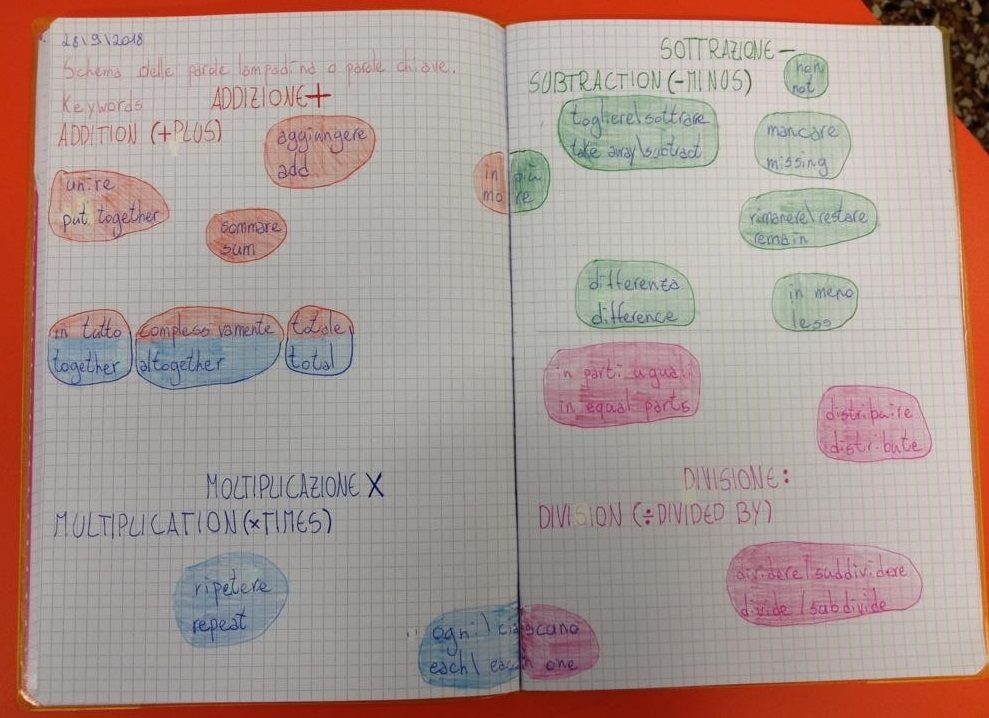 28\9\2018
Schema delle parole lampadina o parole chiave.
Keywords
ADDIZIONE+
ADDITION (+PLUS)
aggiungere
add
unire
put together
sommare
sum
in tutto
together
complessivamente
altogether
totale
total
MOLTIPLICAZIONE X
MULTIPLICATION (×TIMES)
ripetere
repeat
in più
more
ogni\ciascuno
each\each one
SOTTRAZIONE -
SUBTRACTION (-MINUS)
non
not
togliere\sottrarre
take away\subtract
mancare
missing
rimanere\restare
remain
differenza
difference
in meno
less
in parti uguali
in equal parts
distribuire
distribute
DIVISIONE :
DIVISION (÷DIVIDED BY)
dividere/suddividere
divide/subdivide